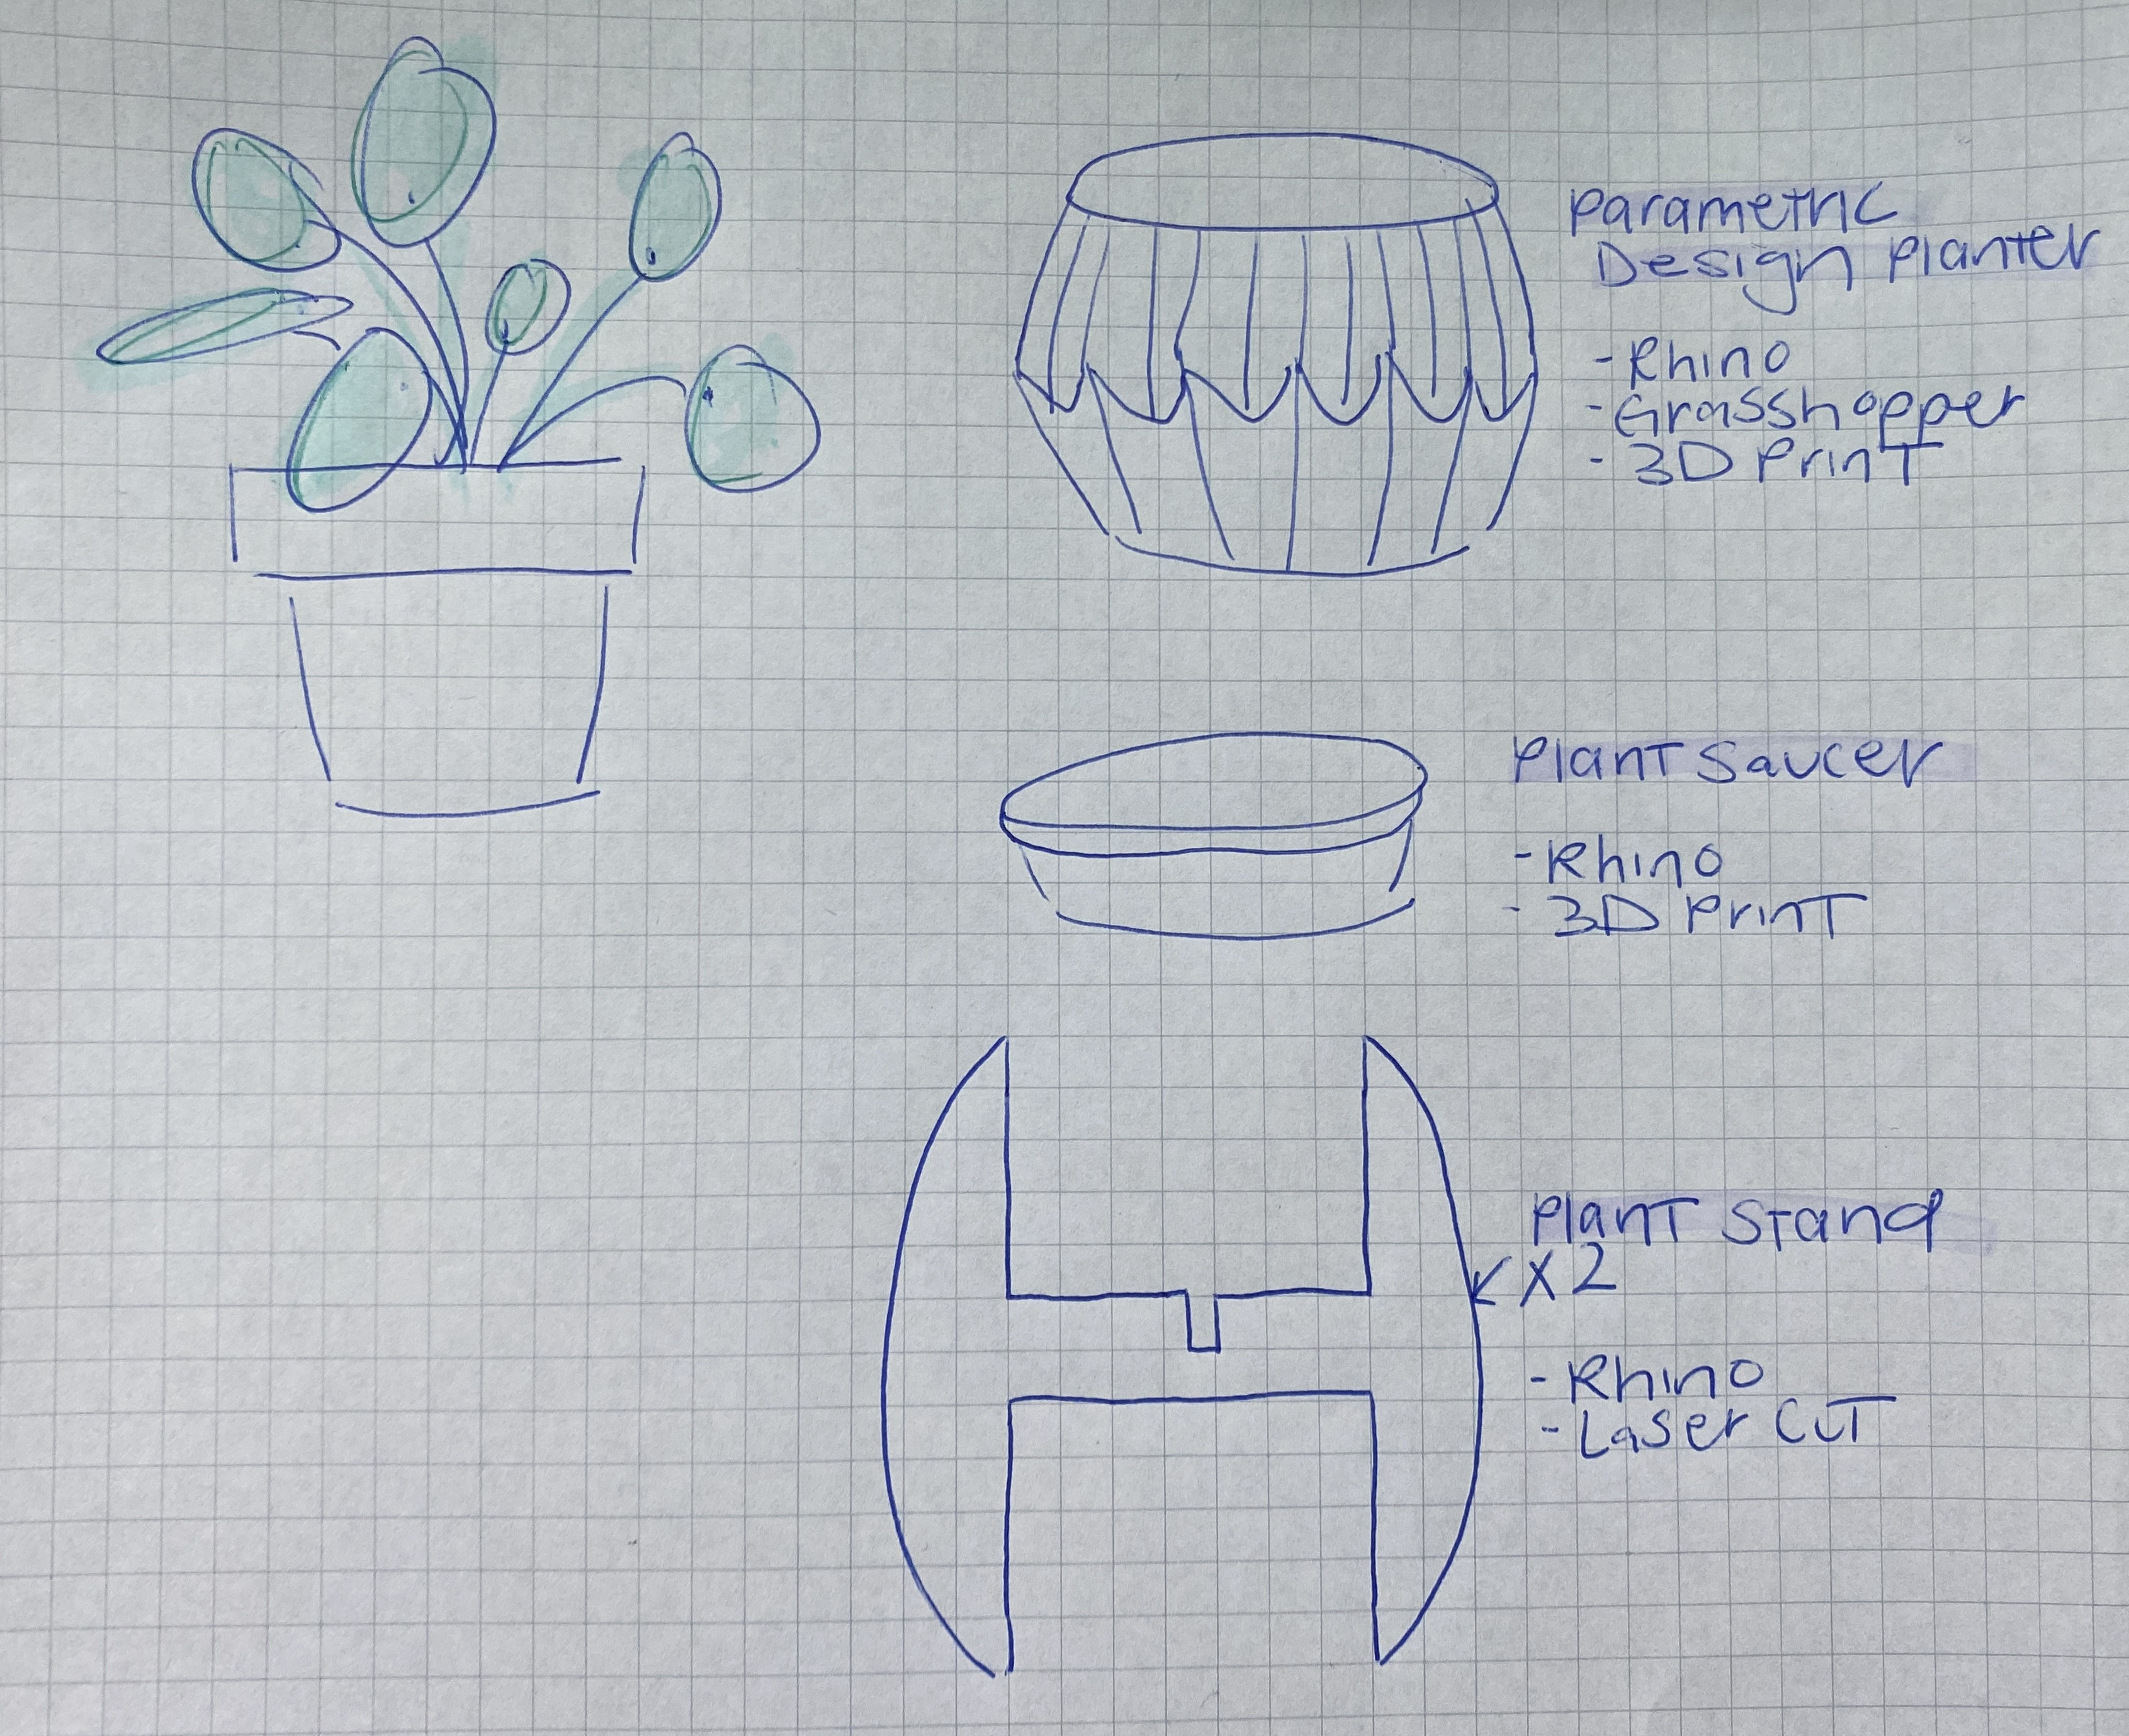 Parametric
Design Planter
- Rhino
- Grasshopper
- 3D Print
Plant Saucer
- Rhino
- 3D Print
Plant Stand
x2
- Rhino
- Laser Cut